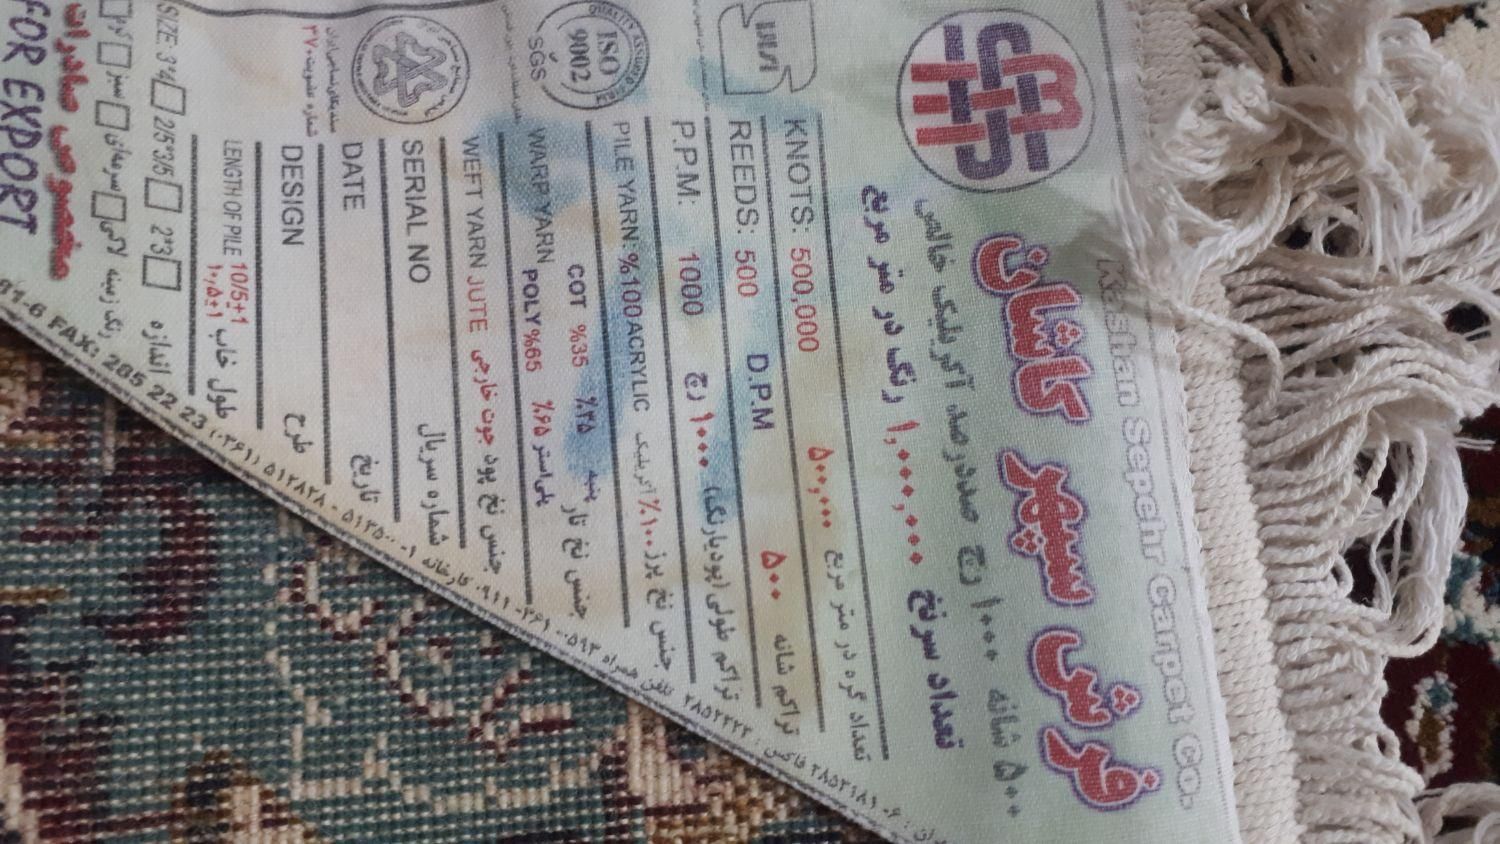 Kashan Sepehr Carpet Co.
فرش سپهر کاشان
۵۰۰ شانه ۱۰۰۰ رج صددرصد آکریلیک خالص
تعداد سرنخ ۱,۰۰۰,۰۰۰ رنگ در متر مربع
KNOTS: 500,000 ۵۰۰,۰۰۰ تعداد گره در متر مربع
REEDS: 500 D.P.M ۵۰۰ تراکم شانه
P.P.M: 1000 ۱۰۰۰ رج تراکم طولی (پودبارنگ)
PILE YARN: %100 ACRYLIC جنس نخ پرز ۱۰۰٪ آکریلیک
WARP YARN COT %35 ٪۳۵ پنبه جنس نخ تار
POLY %65 ٪۶۵ پلی استر
WEFT YARN JUTE جنس نخ پود جوت خارجی
SERIAL NO شماره سریال
DATE تاریخ
DESIGN طرح
LENGTH OF PILE 10/5±1 ۱۰,۵±۱ طول خاب
SIZE: 3*4 2/5*3/5 2*3 اندازه
کرم سبز سرمه‌ای لاکی رنگ زمینه
مخصوص صادرات
FOR EXPORT
ISO
9002
SGS
QUALITY ASSURED FIRM
شماره عضویت ۳۷۰
FAX: 285 22 23 (۰۳۶۱)
۵۱۲۸۲۸ - ۵۱۳۵۰۰۹ کارخانه
تلفن همراه ۰۹۱۱-۲۶۱-۰۵۹۳
۲۸۵۲۱۸۹-۶ فاکس: ۲۸۵۲۲۲۳